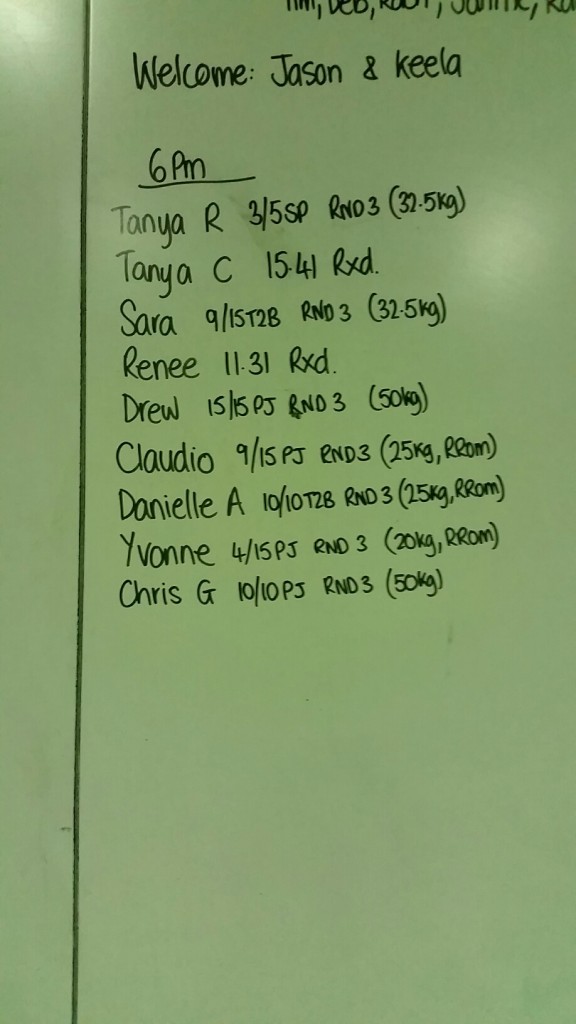 Tim, Deb,
Welcome: Jason & Keela
6Pm
Tanya R 3/5SP RND3 (32.5kg)
Tanya C 15.41 Rxd.
Sara 9/15T2B RND3 (32.5kg)
Renee 11.31 Rxd.
Drew 15/15PJ RND3 (50kg)
Claudio 9/15PJ RND3 (25kg, RRom)
Danielle A 10/10T2B RND3 (25kg, RRom)
Yvonne 4/15PJ RND 3 (20kg, RRom)
Chris G 10/10PJ RND3 (50kg)